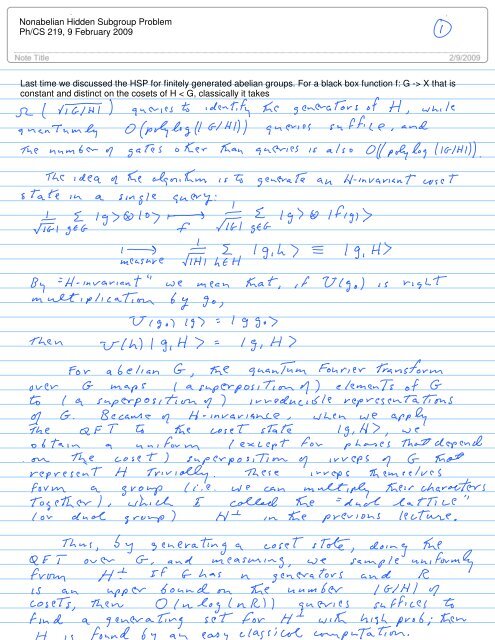 Nonabelian Hidden Subgroup Problem
Ph/CS 219, 9 February 2009
①
Note Title
2/9/2009
Last time we discussed the HSP for finitely generated abelian groups. For a black box function f: G -> X that is
constant and distinct on the cosets of H < G, classically it takes
Ω(√|G/H|) queries to identify the generators of H, while
quantumly O(polylog(|G/H|)) queries suffice, and
the number of gates other than queries is also O(polylog(|G/H|)).
The idea of the algorithm is to generate an H-invariant coset
state in a single query:
1/√|G| Σ_{g∈G} |g>⊗|0> ⟼_f 1/√|G| Σ_{g∈G} |g>⊗|f(g)>
⟼_measure 1/√|H| Σ_{h∈H} |g,h> ≡ |g,H>
By "H-invariant" we mean that, if U(g₀) is right
multiplication by g₀,
U(g₀)|g> = |gg₀>
Then U(h)|g,H> = |g,H>
For abelian G, the quantum Fourier transform
over G maps (a superposition of) elements of G
to (a superposition of) irreducible representations
of G. Because of H-invariance, when we apply
the QFT to the coset state |g,H>, we
obtain a uniform (except for phases that depend
on the coset) superposition of irreps of G that
represent H trivially. These irreps themselves
form a group (i.e. we can multiply their characters
together), which I called the "dual lattice"
(or dual group) H⊥ in the previous lecture.
Thus, by generating a coset state, doing the
QFT over G, and measuring, we sample uniformly
from H⊥. If G has n generators and R
is an upper bound on the number |G/H| of
cosets, then O(n log(nR)) queries suffices to
find a generating set for H⊥ with high prob; then
H is found by an easy classical computation.